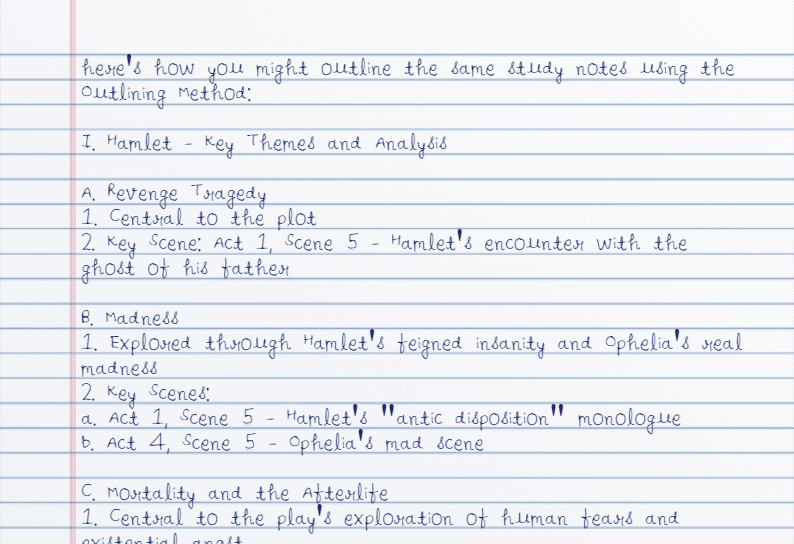 here's how you might outline the same study notes using the
Outlining Method:
I. Hamlet - Key Themes and Analysis
A. Revenge Tragedy
1. Central to the plot
2. Key Scene: Act 1, Scene 5 - Hamlet's encounter with the
ghost of his father
B. Madness
1. Explored through Hamlet's feigned insanity and Ophelia's real
madness
2. Key Scenes:
a. Act 1, Scene 5 - Hamlet's "antic disposition" monologue
b. Act 4, Scene 5 - Ophelia's mad scene
C. Mortality and the Afterlife
1. Central to the play's exploration of human fears and
existential angst